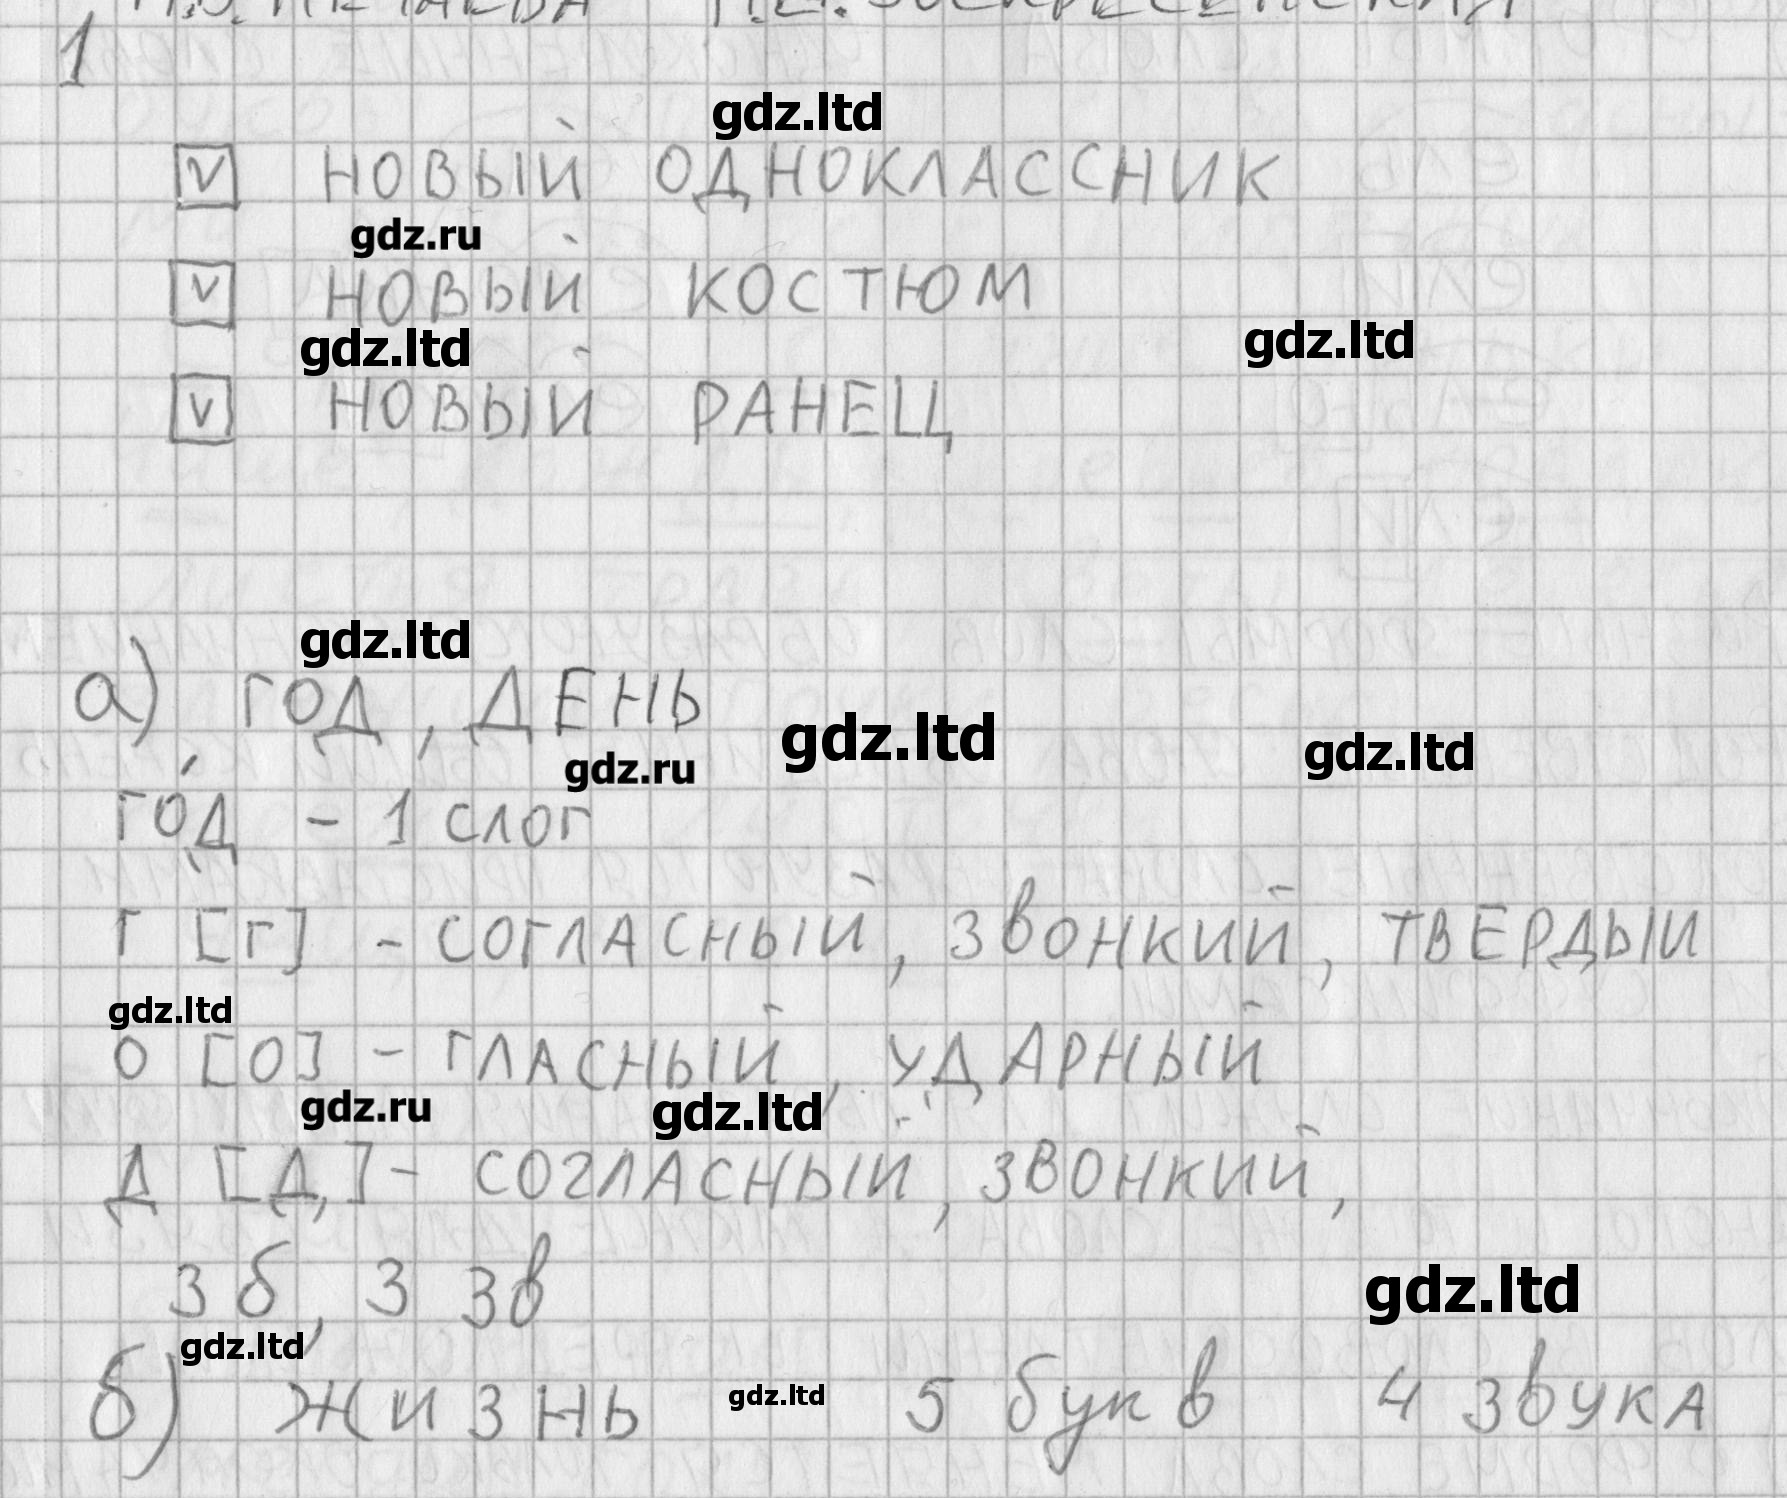 1
gdz.ltd
V НОВЫЙ ОДНОКЛАССНИК
gdz.ru
V НОВЫЙ КОСТЮМ
gdz.ltd gdz.ltd
V НОВЫЙ РАНЕЦ
gdz.ltd
а) ГОД, ДЕНЬ
gdz.ltd gdz.ltd
gdz.ru
ГО́Д - 1 СЛОГ
Г [Г] - СОГЛАСНЫЙ, ЗВОНКИЙ, ТВЕРДЫЙ
gdz.ltd
О [О] - ГЛАСНЫЙ, УДАРНЫЙ
gdz.ru gdz.ltd
Д [Д,] - СОГЛАСНЫЙ, ЗВОНКИЙ,
3 б, 3 зв
gdz.ltd
gdz.ltd
б) ЖИЗНЬ gdz.ltd 5 букв 4 звука